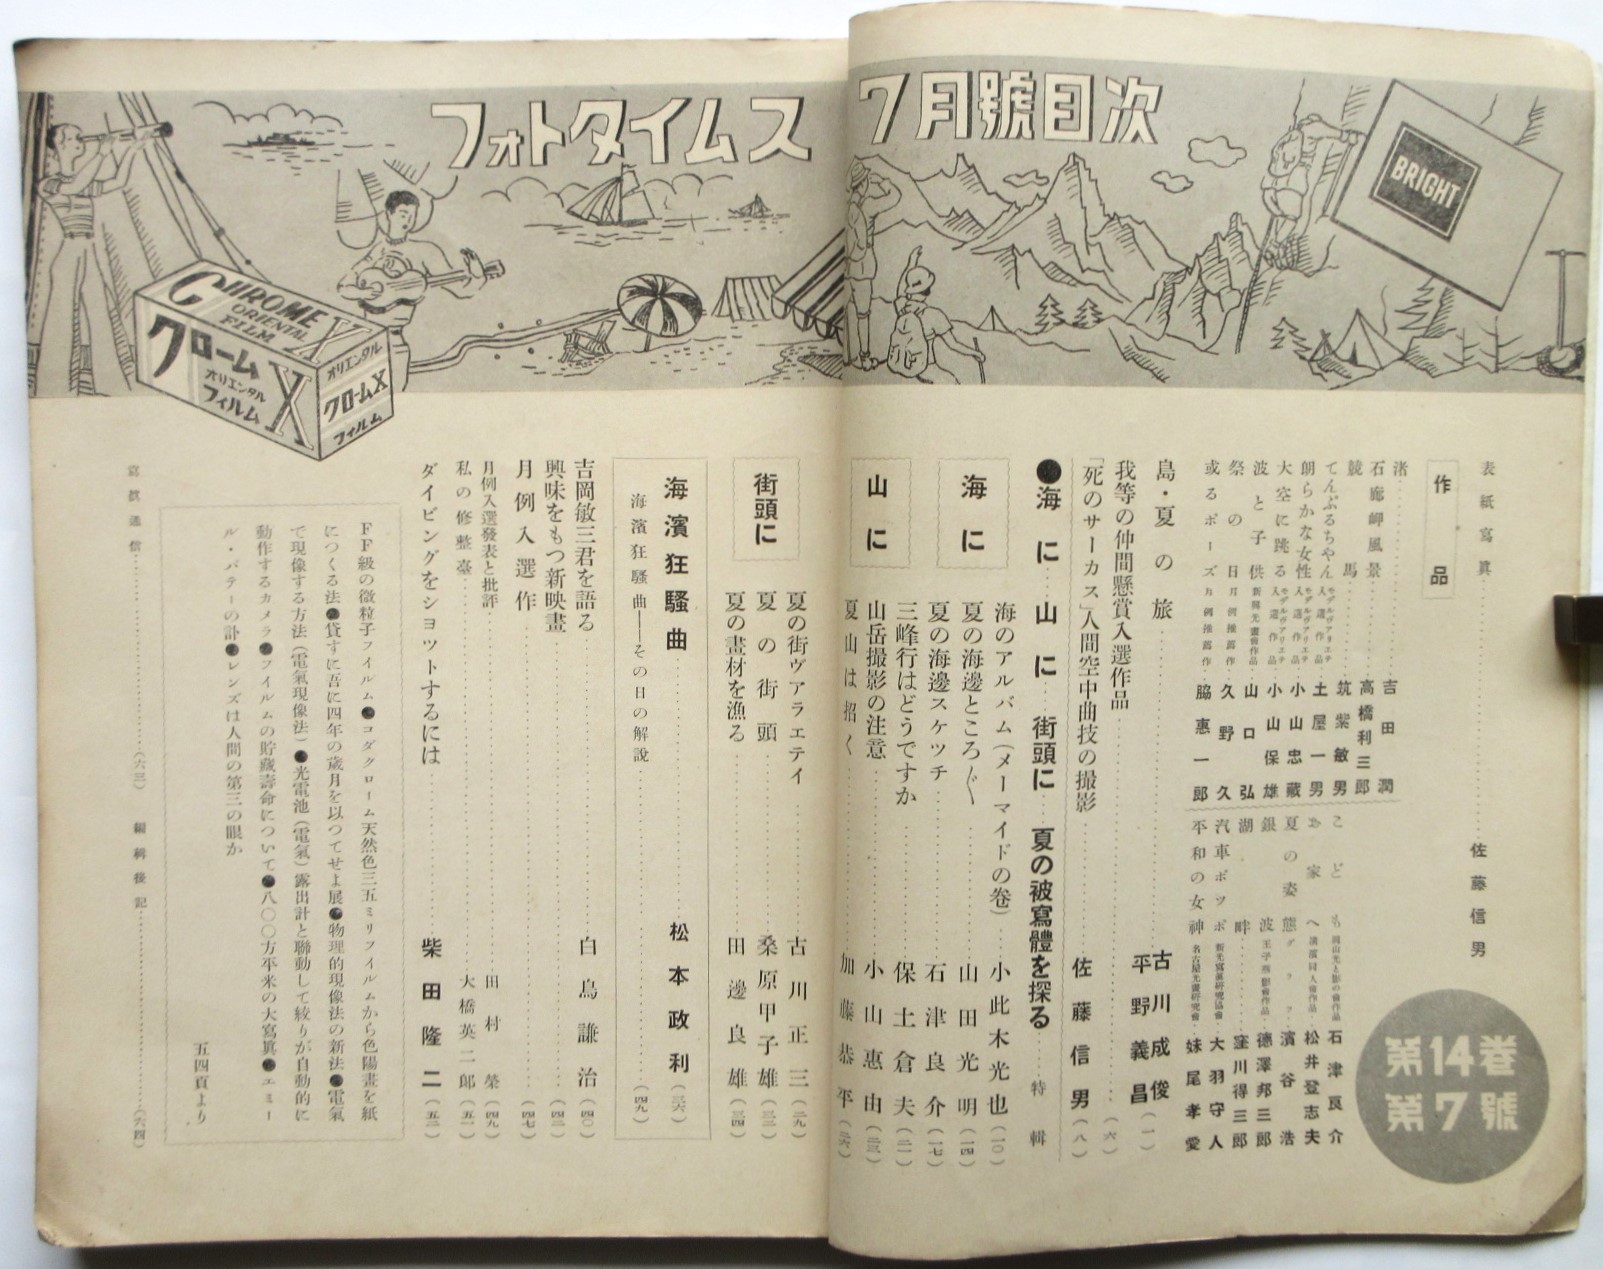 フォトタイムス 7月號目次
BRIGHT
CHROME X
ORIENTAL
FILM
クローム X
オリエンタル
フィルム
オリエンタル
クロームX
フィルム
第14巻
第7號
表紙寫眞……佐藤信男
作品
渚……吉田潤
石廊岬風景……高橋利三郎
競馬……筑紫敏男
てんぷるちやん モデルヴアリエテ入選作品 土屋一男
朗らかな女性 モデルヴアリエテ入選作品 小山忠藏
大空に跳る モデルヴアリエテ入選作品 小山保雄
波と子供 山口弘
祭の日 月例推薦作 久野久
或るポーズ 月例推薦作 脇惠一郎
こども 石津良介
わが家へ 松井登志夫
夏の姿態 濱谷浩
銀波 德澤邦三郎
湖畔……窪川得三郎
汽車ポツポ 大羽守人
平和の女神 名古屋光畫研究會 妹尾孝愛
島・夏の旅……古川成俊 平野義昌(一)
我等の仲間懸賞入選作品……(六)
「死のサーカス」人間空中曲技の撮影……佐藤信男(八)
●海に…山に…街頭に…夏の被寫體を探る……特輯
海に
海のアルバム(メーマイドの卷)……小此木光也(一〇)
夏の海邊ところ〴〵……山田光明(一四)
夏の海邊スケツチ……石津良介(一七)
山に
三峰行はどうですか……保土倉夫(二一)
山岳撮影の注意……小山惠由(二三)
夏山は招く……加藤恭平(二六)
街頭に
夏の街ヴアラエテイ……古川正三(二九)
夏の街頭……桑原甲子雄(三二)
夏の畫材を漁る……田邊良雄(三四)
海濱狂騷曲……松本政利(三六)
海濱狂騷曲――その日の解說……(四九)
吉岡敏三君を語る……白鳥謙治(四〇)
興味をもつ新映畫……(四二)
月例入選作……(四七)
月例入選發表と批評……田村榮(四九)
私の修整臺……大橋英二郎(五一)
ダイビングをシヨツトするには……柴田隆二(五二)
FF級の微粒子フイルム●コダクローム天然色三五ミリフイルムから色陽畫を紙
につくる法●貸すに吾に四年の歲月を以つてせよ展●物理的現像法の新法●電氣
で現像する方法(電氣現像法)●光電池(電氣)露出計と聯動して絞りが自動的に
動作するカメラ●フイルムの貯藏壽命について●八〇〇方平米の大寫眞●エミー
ル・パテーの訃●レンズは人間の第三の眼か
五四頁より
寫眞通信……(六三) 編輯後記……(六四)